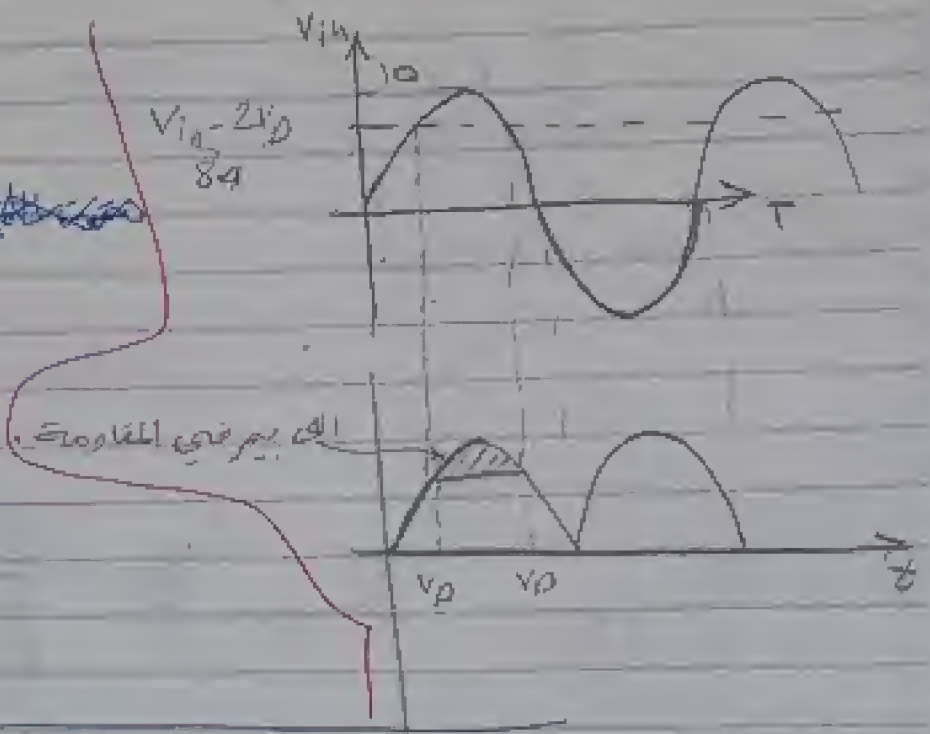 Vin
10
Vin - 2VD
84
T
الي يمر في المقاومة
VD VD
t